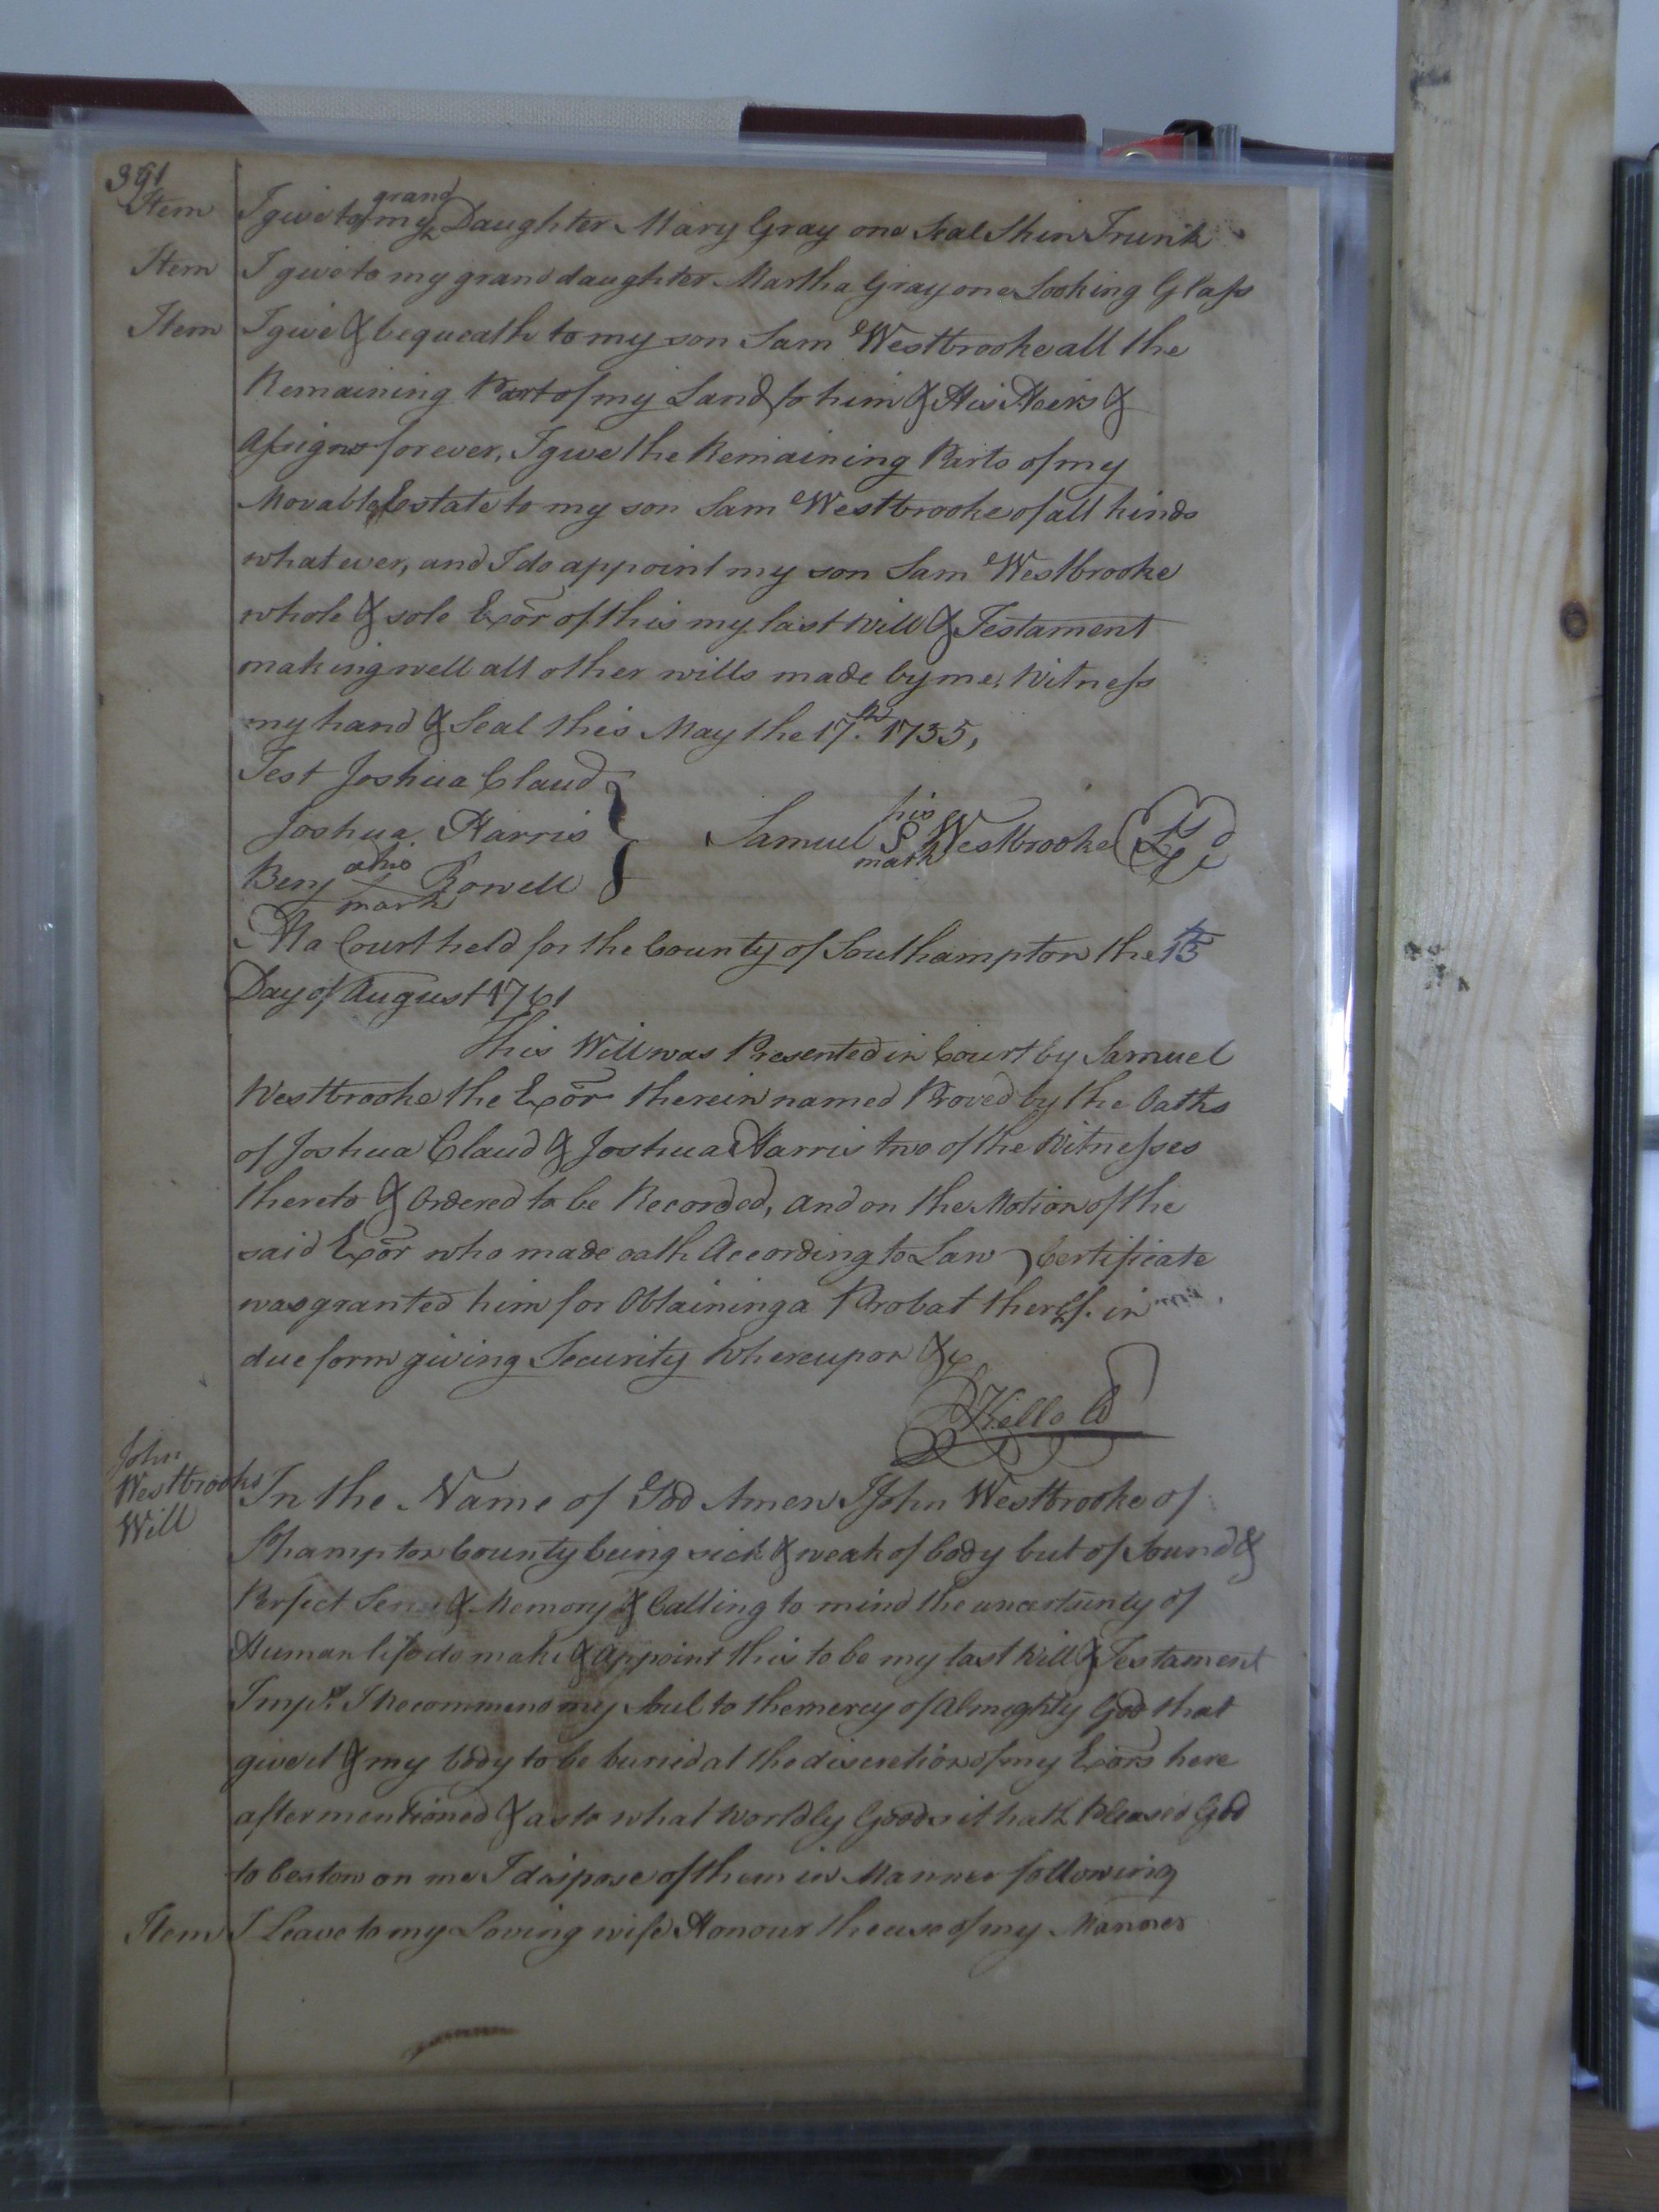 391
Item I give to my grand Daughter Mary Gray one Seal Skin Trunk
Item I give to my grand daughter Martha Gray one Looking Glass
Item I give & bequeath to my son Sam Westbrooke all the
Remaining Part of my Land to him & His Heirs &
Assigns forever, I give the Remaining Parts of my
Movable Estate to my son Sam Westbrooke of all kinds
whatever, and I do appoint my son Sam Westbrooke
whole & sole Exor of this my last Will & Testament
making well all other wills made by me, Witness
my hand & Seal this May the 17th 1735,
Test Joshua Claud
Joshua Harris
Benj his mark Rowell
Samuel his S mark Westbrooke
At a Court held for the County of Southampton the 13th
Day of August 1761
This Will was Presented in Court by Samuel
Westbrooke the Exor therein named Proved by the Oaths
of Joshua Claud & Joshua Harris two of the Witnesses
thereto & Ordered to be Recorded, and on the Motion of the
said Exor who made oath According to Law Certificate
was granted him for Obtaining a Probat thereof. in
due form giving Security Whereupon &c
Kello
John
Westbrooks
Will
In the Name of God Amen I John Westbrooke of
Shampton County being sick & weak of body but of Sound &
Perfect Sense & Memory & Calling to mind the uncertainty of
Human life do make & appoint this to be my last Will & Testament
Impr. I Recommend my Soul to the mercy of Almighty God that
give it & my body to be buried at the discretion of my Exors here
after mentioned & as to what Worldly Goods it hath Pleased God
to bestow on me I dispose of them in Manner following
Item I Leave to my Loving wife Honour the use of my Manner